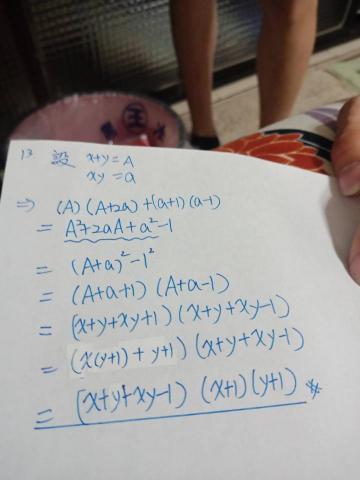 13 設 x+y=A
xy=a
⇒ (A)(A+2a)+(a+1)(a-1)
= A²+2aA+a²-1
= (A+a)²-1²
= (A+a+1)(A+a-1)
= (x+y+xy+1)(x+y+xy-1)
= (x(y+1)+y+1)(x+y+xy-1)
= (x+y+xy-1)(x+1)(y+1)